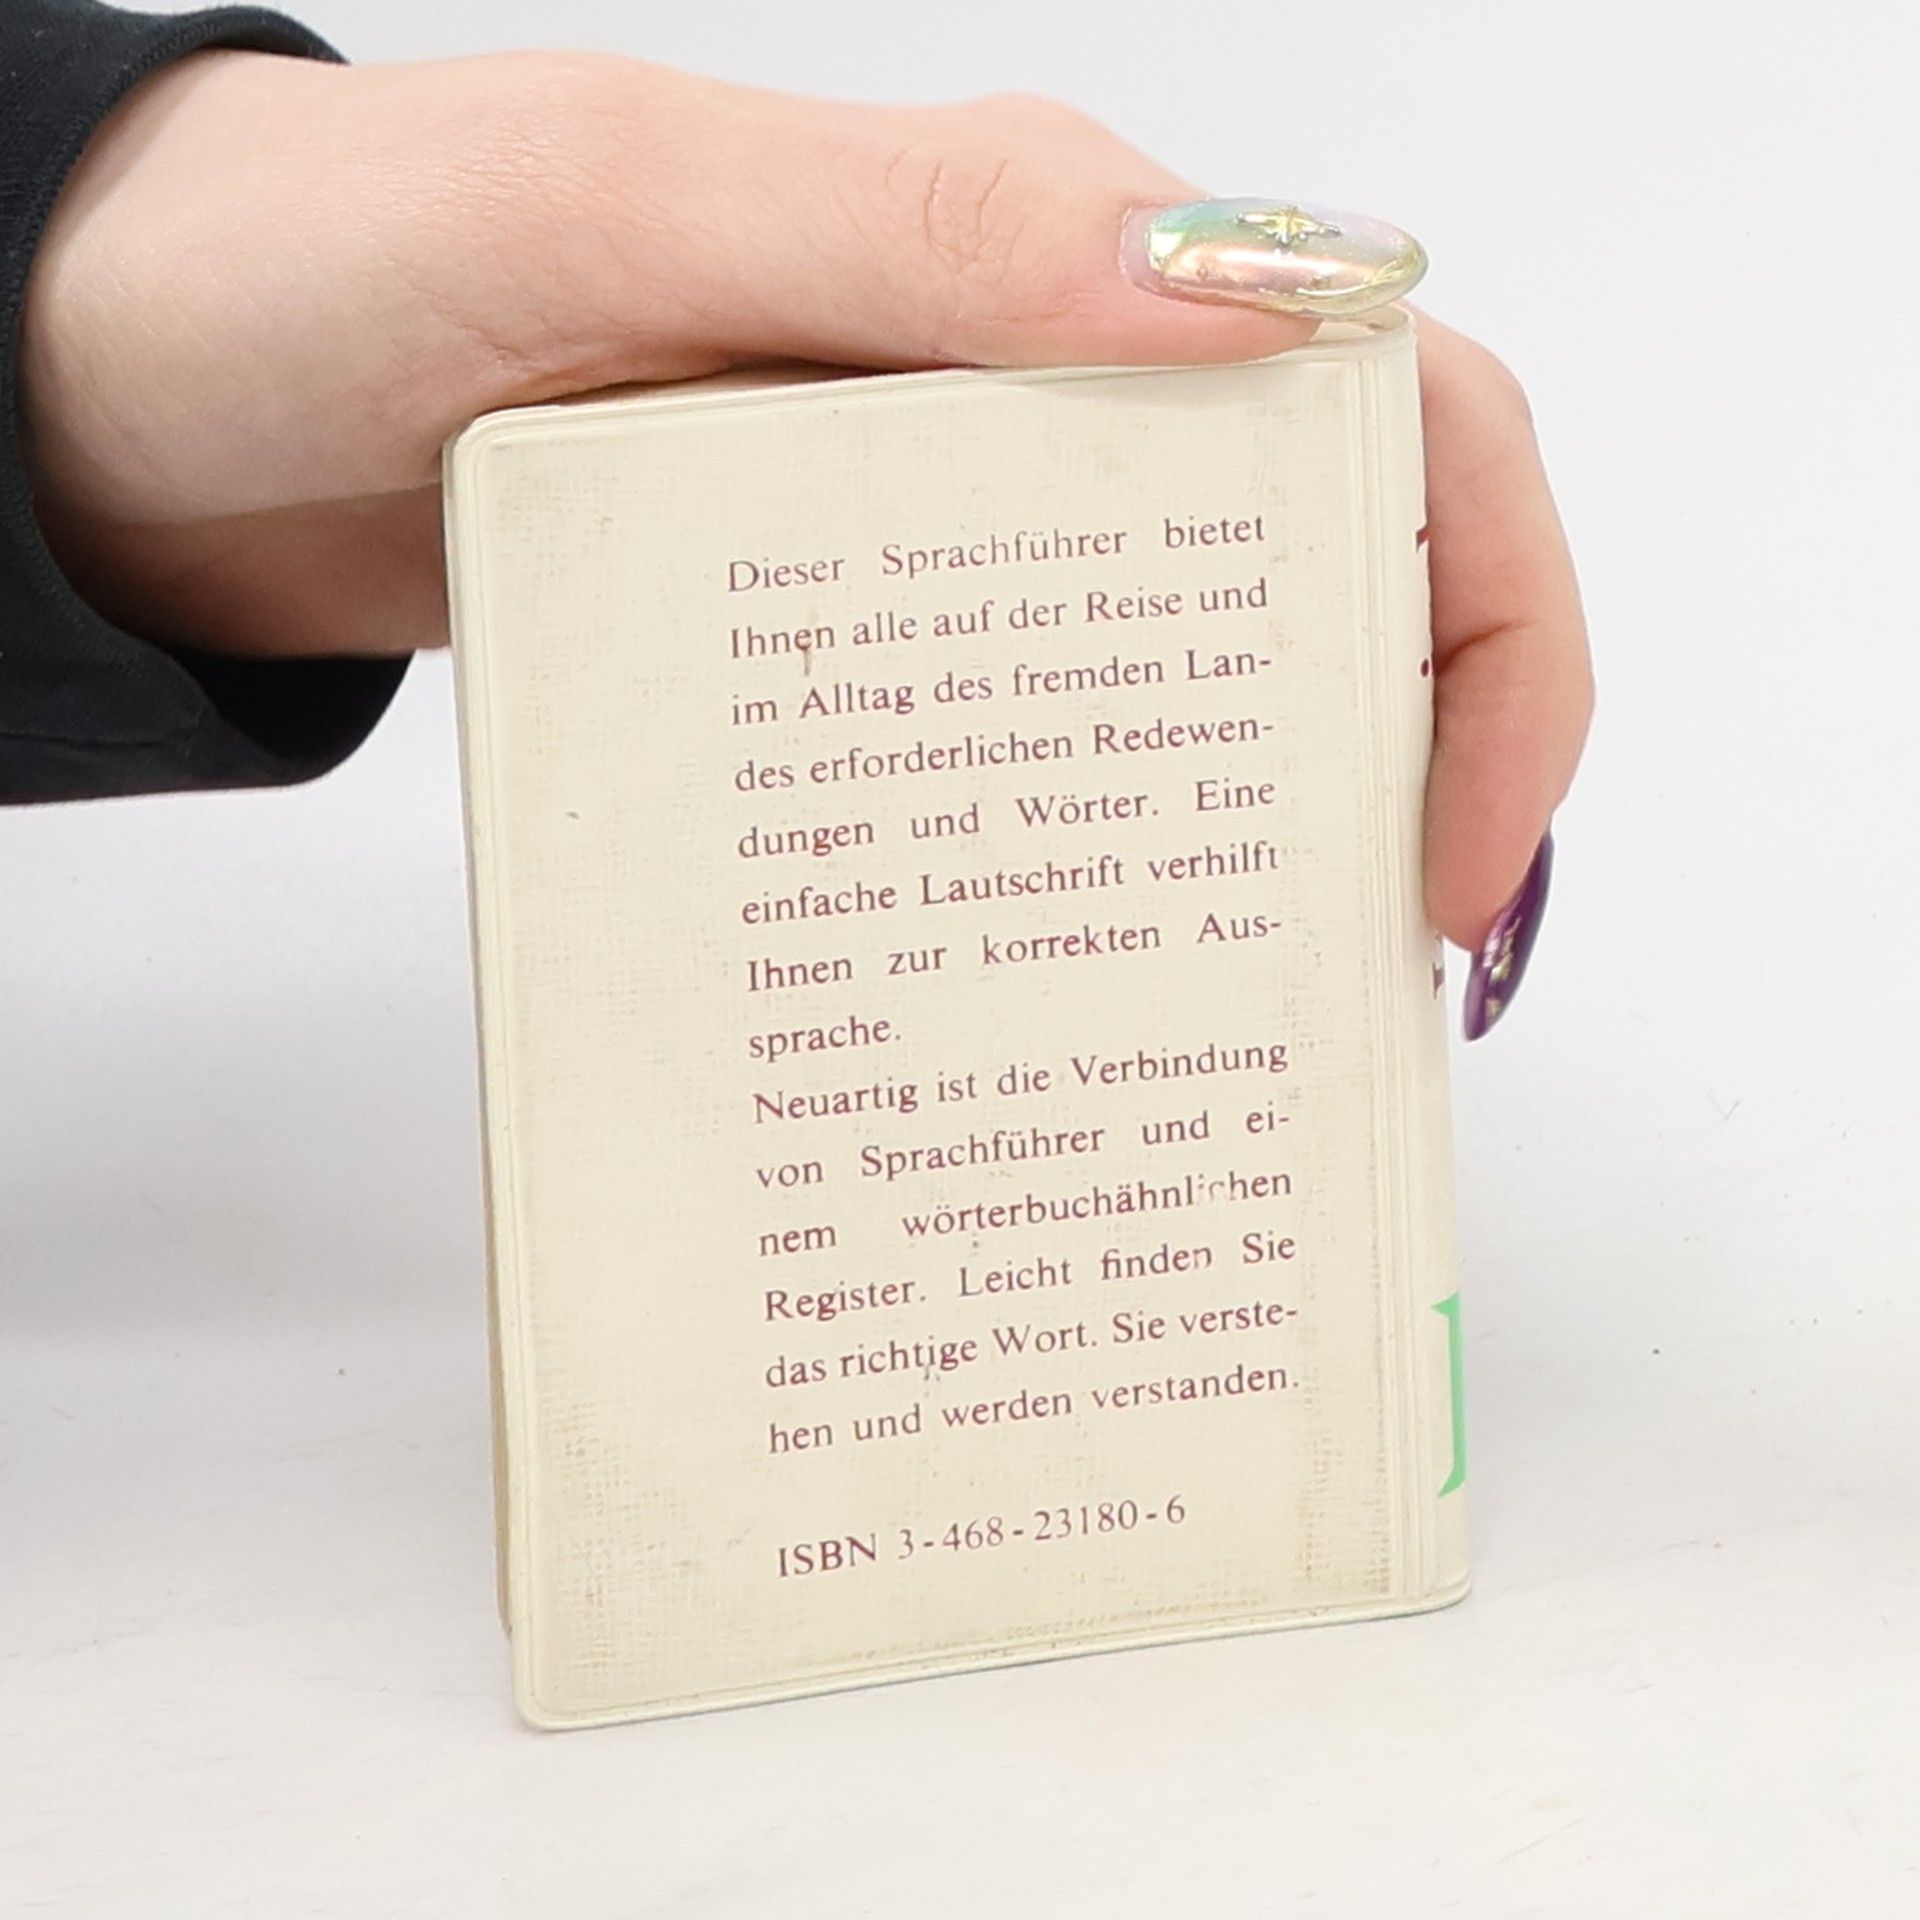 Dieser Sprachführer bietet
Ihnen alle auf der Reise und
im Alltag des fremden Lan-
des erforderlichen Redewen-
dungen und Wörter. Eine
einfache Lautschrift verhilft
Ihnen zur korrekten Aus-
sprache.
Neuartig ist die Verbindung
von Sprachführer und ei-
nem wörterbuchähnlichen
Register. Leicht finden Sie
das richtige Wort. Sie verste-
hen und werden verstanden.
ISBN 3-468-23180-6